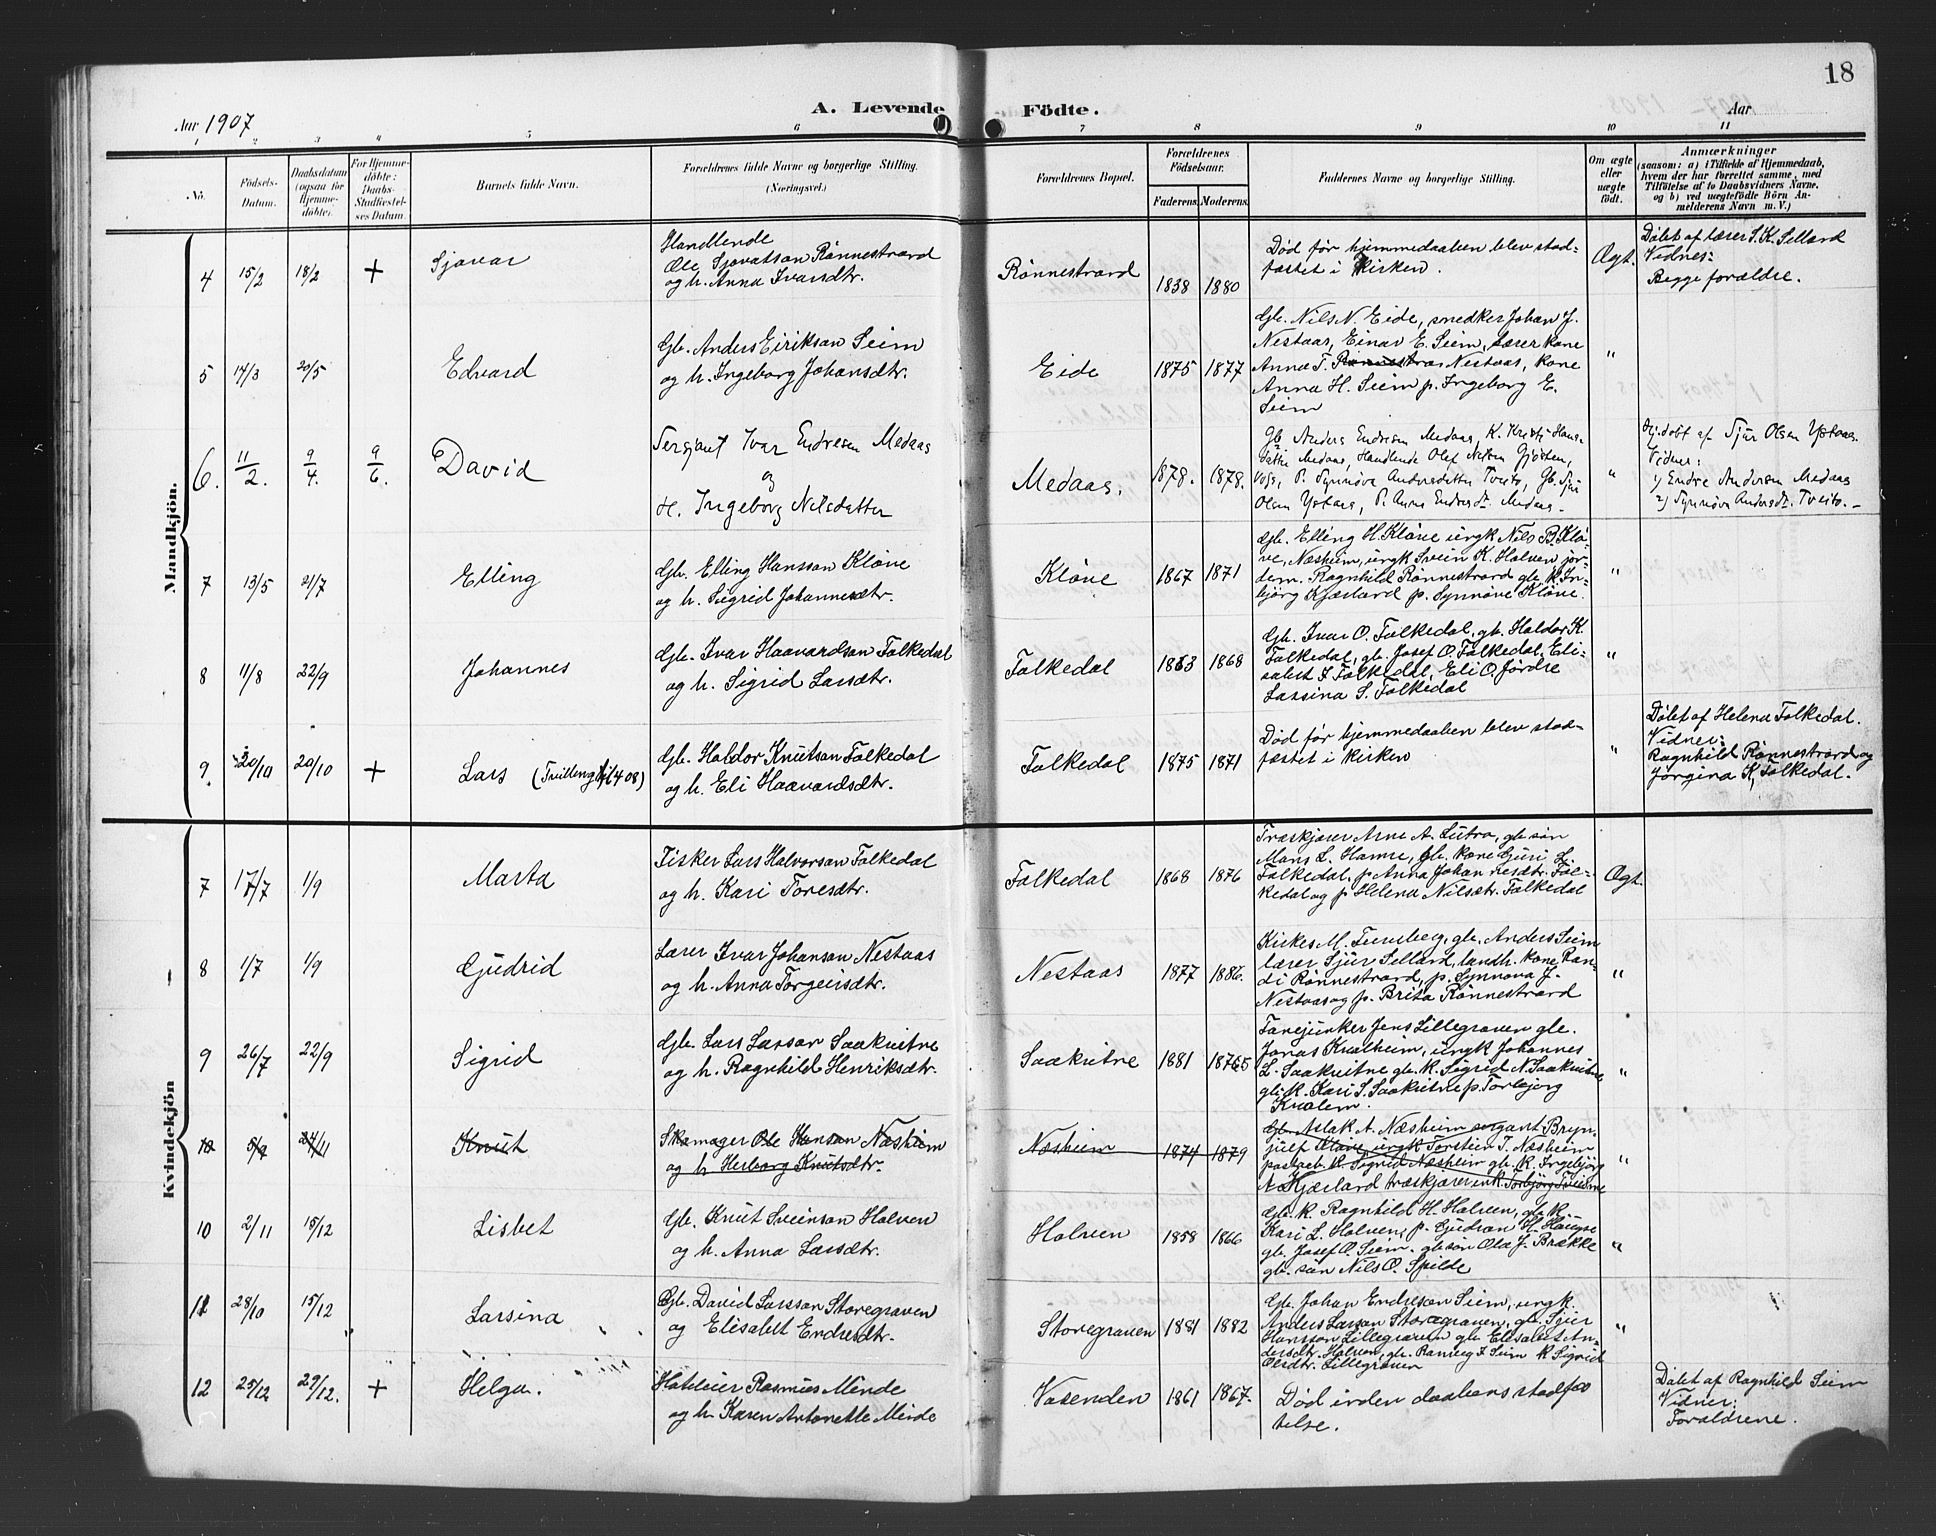 18
A. Levende Födte.
Aar 1907
Aar
1 2 3 4 5 6 7 8 9 10 11
No.
Födsels-
Datum.
Daabsdatum
(ogsaa for
Hjemme-
döbte).
For Hjemme-
döbte:
Daabs-
Stadfæstel-
ses Datum.
Barnets fulde Navn.
Forældrenes fulde Navne og borgerlige Stilling.
(Næringsvei.)
Forældrenes Bopæl.
Forældrenes
Födselsaar.
Faderens.
Moderens.
Faddernes Navne og borgerlige Stilling.
Om ægte
eller
uægte
födt.
Anmærkninger
(saasom: a) i Tilfælde af Hjemmedaab,
hvem der har forrettet samme, med
Tilföielse af to Daabsvidners Navne.
og b) ved uægtefödte Börn An-
melderens Navn m. V.)
Mandkjön.
4 15/2 18/2 + Sjovar
Handlende
Ole Sjovatson Rønnestrand
og h. Anna Ivarsdtr.
Rønnestrand 1838 1880
Død før hjemmedaaben blev stad-
fæstet i Kirken.
Ægt.
Døbt af lærer S. K. Selland
Vidnes:
Begge forældre.
5 14/3 20/5 Edvard
Gb. Anders Eirikson Seim
og h. Ingeborg Johansdtr.
Eide 1875 1877
Gb. Nils N. Eide, snedker Johan J.
Nestaas, Einar E. Seim, lærer kone
Anna T. Rønnestran Nestaas, kone
Anna H. Seim p. Ingeborg E.
Seim
"
6. 11/2. 9/4. 9/6. David
Sersjant Ivar Endresen Medaas
og
H. Ingeborg Nilsdatter
Medaas. 1878. 1878.
Gb. Anders Endresen Medaas, K. Kristi Hans-
datter Medaas, Handlende Olef Nelsen Gjøsten,
Voss, P. Synnøva Andersdatter Tveito, Gb. Sjur
Olsen Ystaas, P. Anna Endresdt. Medaas.
"
Hj. døbt af Sjur Olsen Ystaas.
Vidner:
1) Endre Andersen Medaas
2) Synnøva Andersdt. Tveito. -
7 13/5 21/7 Elling
Gb. Elling Hansson Kløve
og h. Sigrid Johannesdtr.
Kløve 1867 1871
Gb. Elling H. Kløve ungk Nils B. Klø-
ve, Næsheim, ungk Svein K. Holven jor-
dem. Ragnhild Rønnestrand gb. K. In-
bjørg Kjærland p. Synnøve Kløve.
"
8 11/8 22/9 Johannes
Gb. Ivar Haavardson Folkedal
og h. Sigrid Larsdtr.
Folkedal 1863 1868
Gb. Ivar O. Folkedal, gb. Haldor K.
Folkedal, gb. Josef O. Folkedal, Eli-
sabet I Folkedal, Eli O. Jørdre
Larsina S. Folkedal
"
9. 20/10 20/10 + Lars (Tvilling til 4 08)
Gb. Haldor Knutson Folkedal
og h. Eli Haavardsdtr.
Folkedal 1875 1871
Død før hjemmedaaben blev stad-
fæstet i kirken
"
Døbt af Helena Folkedal.
Vidner:
Ragnhild Rønnestrand og
Jørgina K. Folkedal.
Kvindekjön
7 17/7 1/9 Marta
Fisker Lars Halvorson Folkedal
og h. Kari Toresdtr.
Folkedal 1868 1876
Træskjærer Arne A. Lutro, gb. søn
Mons L. Hamre, gb. kone Guri L.
Folkedal, p. Anna Johannesdtr. Fol-
kedal og p. Helena Nilsdtr. Folkedal
Ægt.
8 1/7 1/9 Gudrid
Lærer Ivar Johanson Nestaas
og h. Anna Torgeirsdtr.
Nestaas 1877 1886.
Kirkes M. Furuberg, gb. Anders Seim
lærer Sjur Selland, landh. kone Ran-
di Rønnestrand, p. Synnova J.
Nestaas og p. Brita Rønnestrand
"
9 26/7 22/9 Sigrid
Gb. Lars Larson Saakvitne
og h. Ragnhild Henriksdtr.
Saakvitne 1881 18765
Fanejunker Jens Lillegraven gb.
Jonas Kvalheim, ungk Johannes
L. Saakvitne gb. K. Sigrid N. Saakvitne
gb. K. Kari S. Saakvitne p. Torbjørg
Kvalem.
"
10 5/9 24/11 Knut
Skomager Ole Hanson Næsheim
og h Herborg Knutsdtr.
Næsheim 1874 1879
Gb. Aslak A. Næsheim sergant Bryn-
julf Kløve, ungk Torstein T. Næsheim
K. Sigrid Næsheim gb. K. Ingebjørg
A. Kjærland træskjærer
"
10 2/11 15/12 Lisbet
Gb. Knut Sveinson Holven
og h. Anna Larsdtr.
Holven 1858 1866
Gb. K. Ragnhild H. Holven, gb. K.
Kari L. Holven, p. Gudrun H. Haugse
gb. Josef O. Seim. gb søn Ola J. Brække
gb. søn Nils O. Spilde
"
11 28/10 15/12 Larsina
Gb. David Larsson Storegraven
og Elisabet Endresdtr.
Storegraven 1881 1882
Gb. Johan Endreson Seim, ungk.
Anders Larson Storegraven, gb. Sjur
Hansson Lillegraven gb. Elisabet An-
dersdtr. Holven, gb. Ranveig I Seim K Sigrid
Olsdtr. Lillegraven
"
12 25/12 29/12. + Helga.
Hoteleier Rasmus Minde
og h. Karen Antonette Minde
Vasenden 1861 1867.
Død inden daabens stadfæs
telse.
Døbt af Ragnhild Seim
Vidner:
Forældrene.